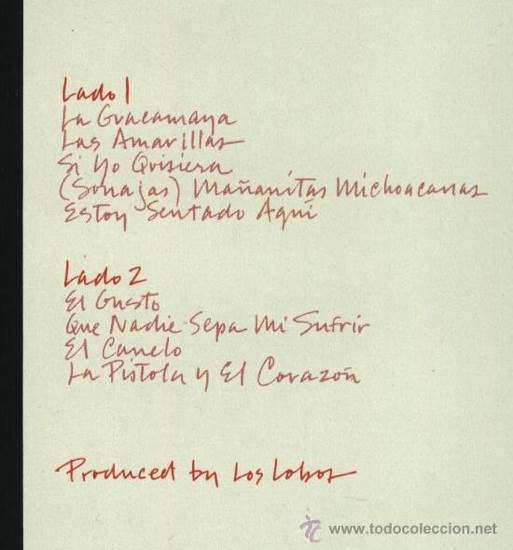 Lado 1
La Guacamaya
Las Amarillas
Si Yo Quisiera
(Sonajas) Mañanitas Michoacanas
Estoy Sentado Aquí
Lado 2
El Gusto
Que Nadie Sepa Mi Sufrir
El Canelo
La Pistola y El Corazón
Produced by Los Lobos
www.todocoleccion.net